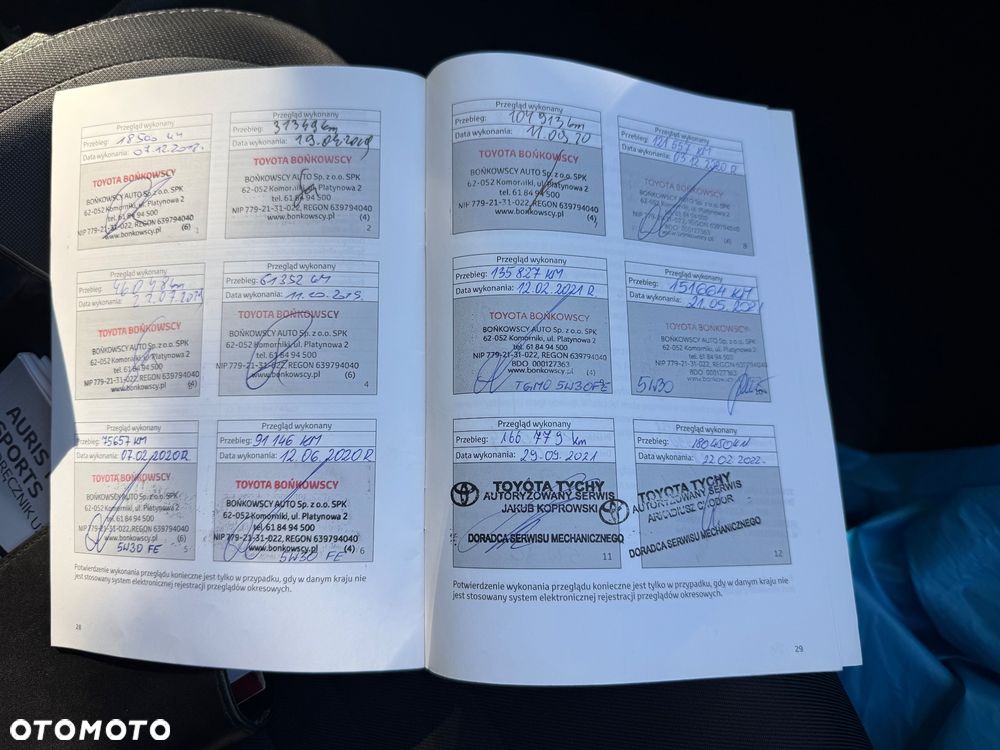 Przegląd wykonany
Przebieg: 18500 km
Data wykonania: 07.12.2018.
TOYOTA BOŃKOWSCY
BOŃKOWSCY AUTO Sp. z o.o. SPK
62-052 Komorniki, ul. Platynowa 2
tel. 61 84 94 500
NIP 779-21-31-022, REGON 639794040
www.bonkowscy.pl (6)
1
Przegląd wykonany
Przebieg: 31349 km
Data wykonania: 19.04.2019
TOYOTA BOŃKOWSCY
BOŃKOWSCY AUTO Sp. z o.o. SPK
62-052 Komorniki, ul. Platynowa 2
tel. 61 84 94 500
NIP 779-21-31-022, REGON 639794040
www.bonkowscy.pl (4)
2
Przegląd wykonany
Przebieg:
Data wykonania: 22.07.2019
TOYOTA BOŃKOWSCY
BOŃKOWSCY AUTO Sp. z o.o. SPK
62-052 Komorniki, ul. Platynowa 2
tel. 61 84 94 500
NIP 779-21-31-022, REGON 639794040
www.bonkowscy.pl (4)
Przegląd wykonany
Przebieg: 61352 km
Data wykonania: 11.10.2019.
TOYOTA BOŃKOWSCY
BOŃKOWSCY AUTO Sp. z o.o. SPK
62-052 Komorniki, ul. Platynowa 2
tel. 61 84 94 500
NIP 779-21-31-022, REGON 639794040
www.bonkowscy.pl (6)
4
Przegląd wykonany
Przebieg: 75657 KM
Data wykonania: 07.02.2020R
TOYOTA BOŃKOWSCY
BOŃKOWSCY AUTO Sp. z o.o. SPK
62-052 Komorniki, ul. Platynowa 2
tel. 61 84 94 500
NIP 779-21-31-022, REGON 639794040
www.bonkowscy.pl (6)
5W30 FE 5
Przegląd wykonany
Przebieg: 91 146 KM
Data wykonania: 12.06.2020 R
TOYOTA BOŃKOWSCY
BOŃKOWSCY AUTO Sp. z o.o. SPK
62-052 Komorniki, ul. Platynowa 2
tel. 61 84 94 500
NIP 779-21-31-022, REGON 639794040
www.bonkowscy.pl (4)
5W30 FE 6
Potwierdzenie wykonania przeglądu konieczne jest tylko w przypadku, gdy w danym kraju nie
jest stosowany system elektronicznej rejestracji przeglądów okresowych.
28
Przegląd wykonany
Przebieg: 104913 km
Data wykonania: 11.09.20
TOYOTA BOŃKOWSCY
BOŃKOWSCY AUTO Sp. z o.o. SPK
62-052 Komorniki, ul. Platynowa 2
tel. 61 84 94 500
NIP 779-21-31-022, REGON 639794040
www.bonkowscy.pl (4)
Przegląd wykonany
Przebieg: 121 557 KM
Data wykonania: 03.12.2020 R
TOYOTA BOŃKOWSCY
BOŃKOWSCY AUTO Sp. z o.o. SPK
62-052 Komorniki, ul. Platynowa 2
tel. 61 84 94 500
NIP 779-21-31-022, REGON 639794040
BDO 000127363
www.bonkowscy.pl (4)
8
Przegląd wykonany
Przebieg: 135 827 KM
Data wykonania: 12.02.2021 R.
TOYOTA BOŃKOWSCY
BOŃKOWSCY AUTO Sp. z o.o. SPK
62-052 Komorniki, ul. Platynowa 2
tel. 61 84 94 500
NIP 779-21-31-022, REGON 639794040
BDO 000127363
www.bonkowscy.pl (4)
TGMO 5W30FE
Przegląd wykonany
Przebieg: 151664 KM
Data wykonania: 21.05.2021
TOYOTA BOŃKOWSCY
BOŃKOWSCY AUTO Sp. z o.o. SPK
62-052 Komorniki, ul. Platynowa 2
tel. 61 84 94 500
NIP 779-21-31-022, REGON 639794040
BDO 000127363
www.bonkowscy.pl
5W30
Przegląd wykonany
Przebieg: 166 779 km
Data wykonania: 29.09.2021
TOYOTA TYCHY
AUTORYZOWANY SERWIS
JAKUB KOPROWSKI
DORADCA SERWISU MECHANICZNEGO
11
Przegląd wykonany
Przebieg: 180450 KM
Data wykonania: 22.02.2022.
TOYOTA TYCHY
AUTORYZOWANY SERWIS
DORADCA SERWISU MECHANICZNEGO
12
Potwierdzenie wykonania przeglądu konieczne jest tylko w przypadku, gdy w danym kraju nie
jest stosowany system elektronicznej rejestracji przeglądów okresowych.
29
AURIS
SPORTS
OTOMOTO